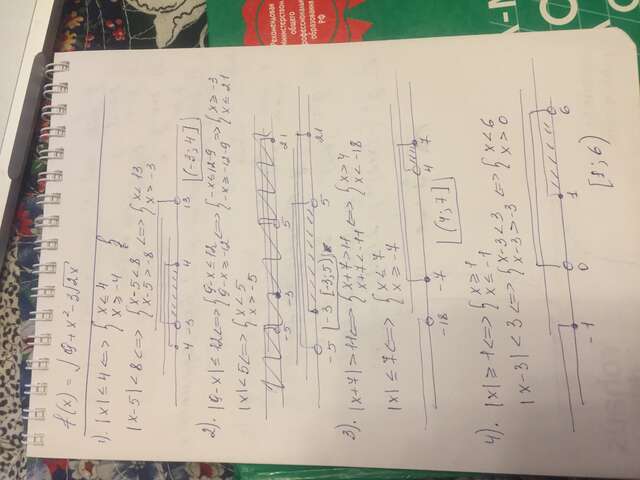 f(x) = √9+x²-3√2x
1). |x| ≤ 4 <=> { x ≤ 4
x ≥ -4 {
|x-5| < 8 <=> { x-5 < 8
x-5 > -8 <=> { x < 13
x > -3
-4 -3 4 13 (-3; 4]
2). |9-x| ≤ 12 <=> { 9-x ≤ 12
9-x ≥ -12 <=> { -x ≤ 12-9
-x ≥ -12-9 => { x ≥ -3
x ≤ 21
|x| < 5 <=> { x < 5
x > -5
-5 -3 5 21
-5 -3 [-3; 5) 5 21
3). |x+7| > 11 <=> { x+7 > 11
x+7 < -11 <=> { x > 4
x < -18
|x| ≤ 7 <=> { x ≤ 7
x ≥ -7
-18 -7 4 7
(4; 7]
4). |x| ≥ 1 <=> { x ≥ 1
x ≤ -1
|x-3| < 3 <=> { x-3 < 3
x-3 > -3 <=> { x < 6
x > 0
-1 0 1 6
[1; 6)
Рекомендовано
Министерством
общего
профессионального
образования
РФ